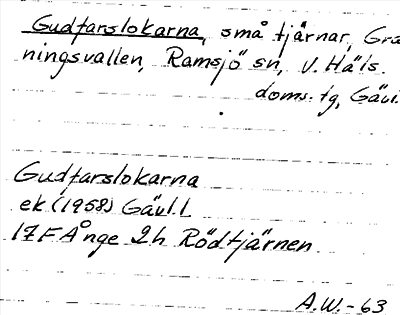 Gudfarslokarna, små tjärnar, Gra
ningsvallen, Ramsjö sn, V. Häls.
doms. tg, Gävl.
Gudfarslokarna
ek (1958) Gävl. l.
17F Ånge 2h Rödtjärnen
A.W.-63